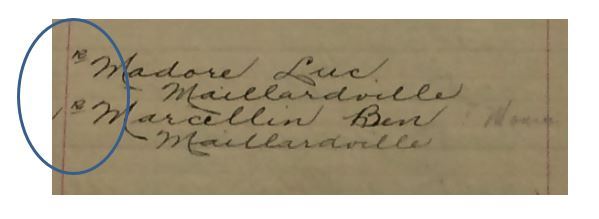 Madore Luc
Maillardville
Marcellin Ben
Maillardville